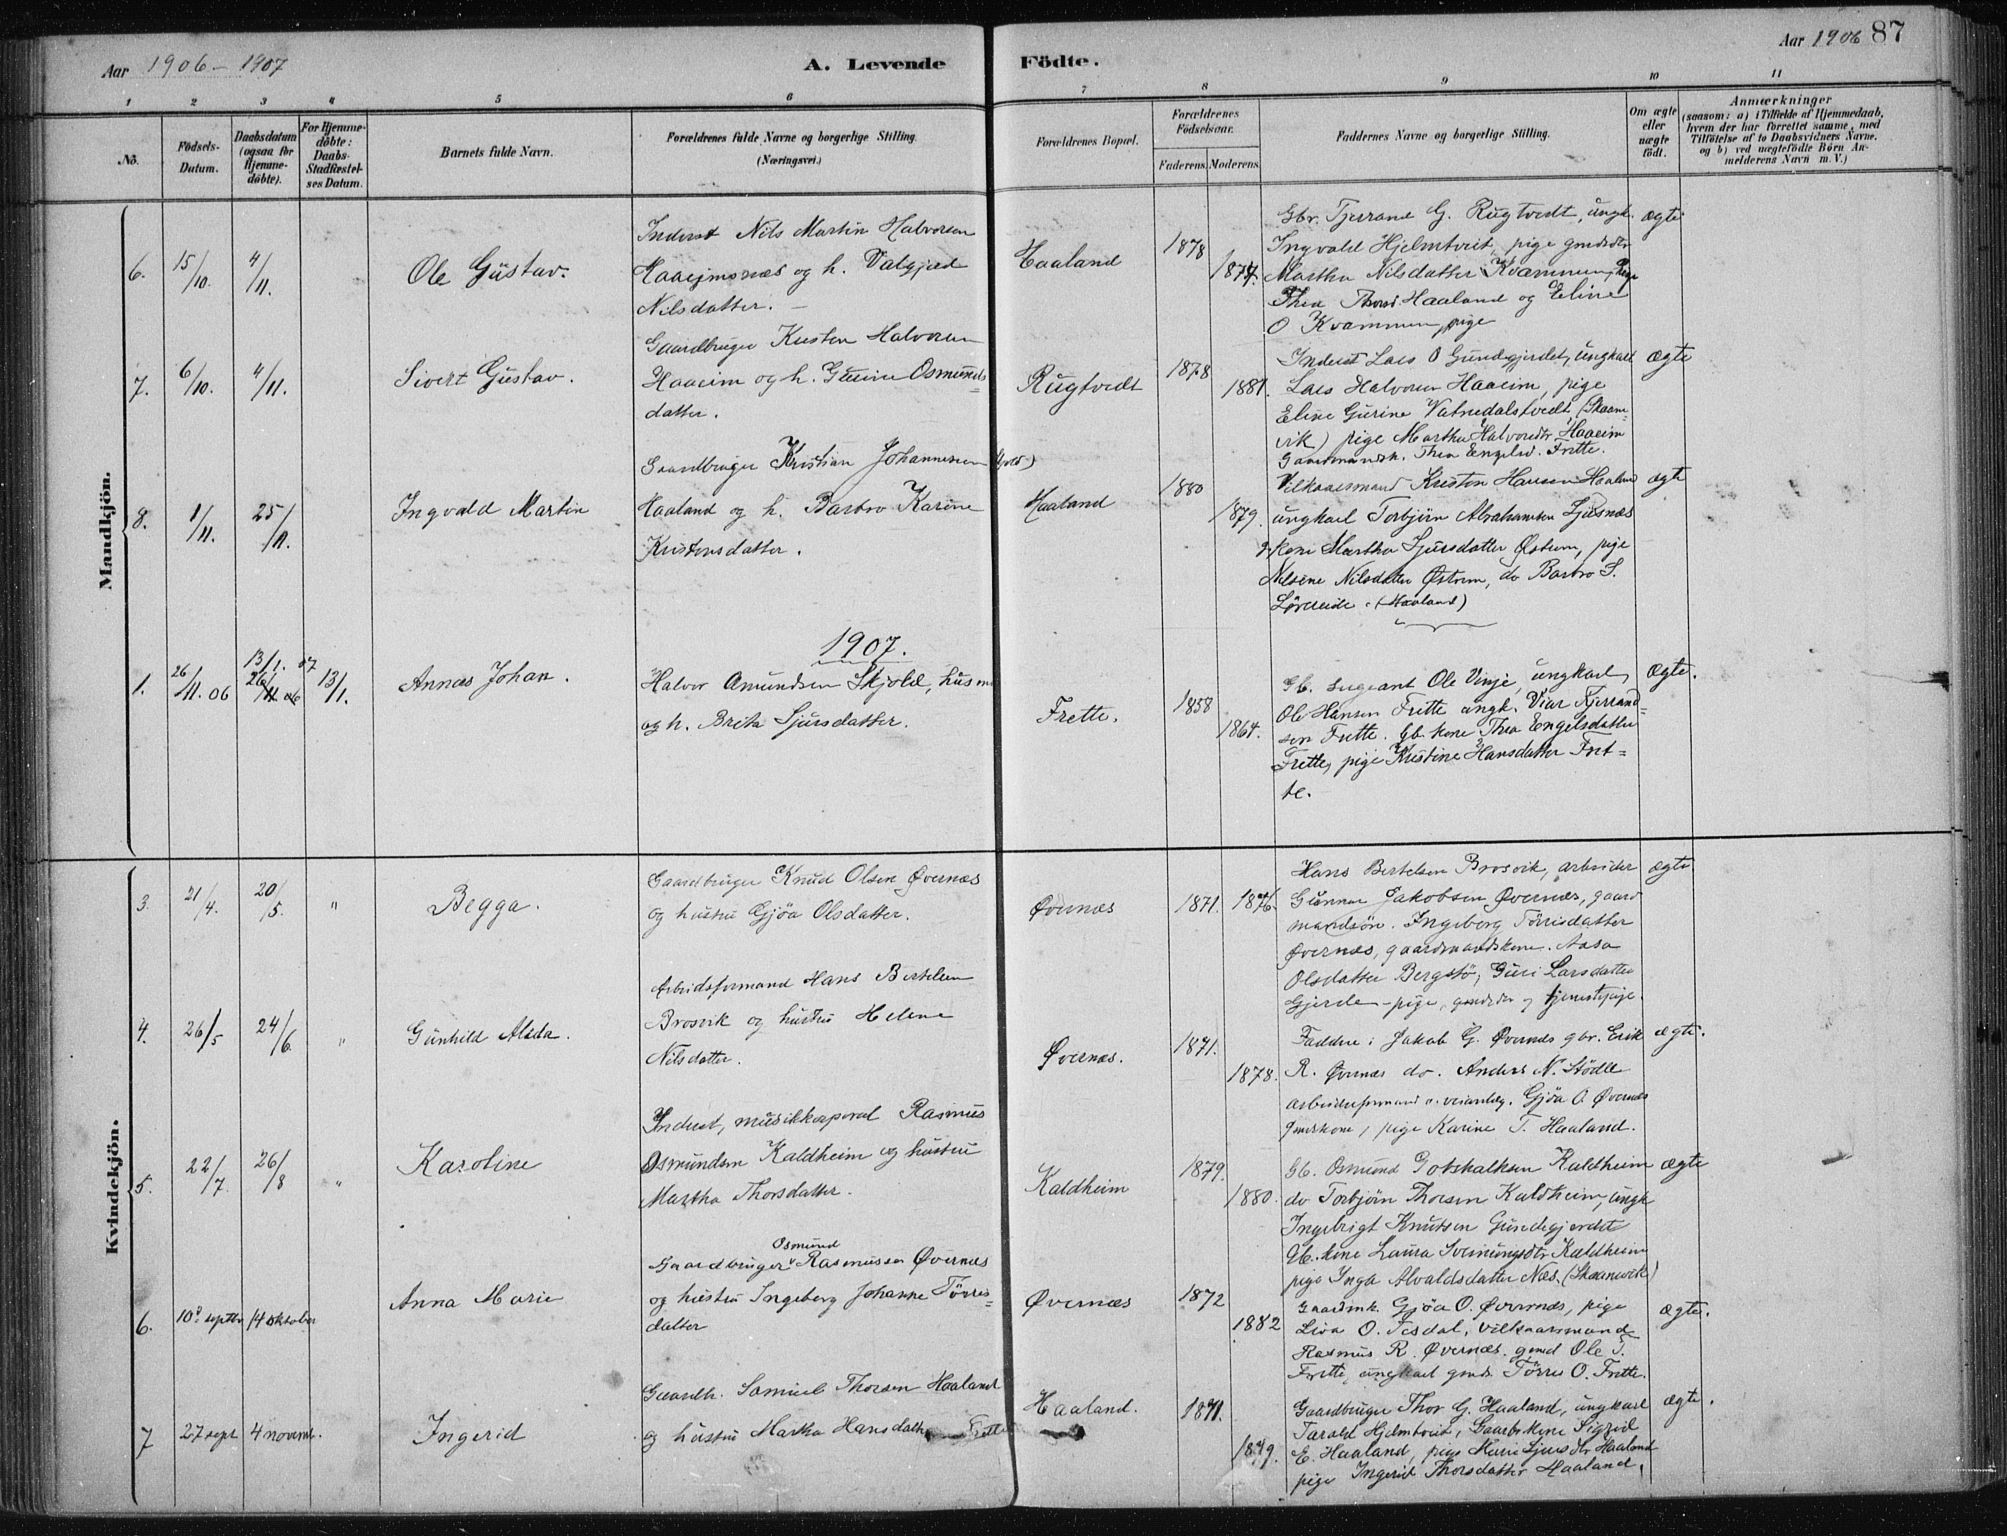 Aar 1906-1907
A. Levende Födte.
Aar 1906 87
1 2 3 4 5 6 7 8 9 10 11
No.
Födsels-
Datum.
Daabsdatum
(ogsaa for
Hjemme-
döbte).
For Hjemme-
döbte:
Daabs-
Stadfæstel-
ses Datum.
Barnets fulde Navn.
Forældrenes fulde Navne og borgerlige Stilling.
(Næringsvei.)
Forældrenes Bopæl.
Forældrenes
Födselsaar.
Faderens. Moderens.
Faddernes Navne og borgerlige Stilling.
Om ægte
eller
uægte
födt.
Anmærkninger
(saasom: a) i Tilfælde af Hjemmedaab,
hvem der har forrettet samme, med
Tilföielse af to Daabsvidners Navne.
og b) ved uægtefödte Börn An-
melderens Navn m. V.)
Mandkjön.
6. 15/10. 4/11. Ole Gustav.
Inderst Nils Martin Halvorsen
Haaeimsnæs og h. Valgjerd
Nilsdatter. –
Haaland
1878
1874.
Gbr. Tjerrand G. Rugtvedt, ungk.
Ingvald Hjelmtveit, pige gmdsdtr
Martha Nilsdatter Kvammen, pige
Thea Thorsd. Haaland og Eline
O Kvammen, pige
ægte
7. 6/10. 4/11. Sivert Gustav.
Gaardbruger Kristen Halvorsen
Haaeim og h. Gurine Osmunds-
datter.
Rugtvedt
1878
1881.
Inderst Lars O Gundegjerdet, ungkarl
Lars Halvorsen Haaeim, pige
Eline Gurine Vatnedalstvedt (Skaane-
vik) pige Martha Halvorsdtr Haaeim
Gaardmandsk. Thea Engelsd. Frette.
ægte
8. 1/11. 25/11. Ingvald Martin
Gaardbruger Kristian Johannesen
Haaland og h. Barbro Karine
Kristensdatter.
Haaland
1880
1879.
Vilkaarsmand Kristen Hansen Haaland
ungkarl Torbjörn Abrahamsen Ljusnæs
kone Martha Sjursdatter Østrem, pige
Nilsine Nilsdatter Østrem, do Barbro S.
Løvereide. (Haaland)
ægte
1907.
1. 26/11. 06 13/1. 07 26/11 06 13/1. Annas Johan.
Halvor Amundsen Skjold, husm
og h. Brita Sjursdatter.
Frette.
1858
1864.
Gb. Sergeant Ole Vinje, ungkarl,
Ole Hansen Frette ungk. Viar Tjerrand-
sen Frette. Gb. kone Thea Engelsdatter
Frette, pige Kristine Hansdatter Fret-
te.
Ægte.
Kvindekjön.
3. 21/4. 20/5. " Begga.
Gaardbruger Knud Olsen Øvernæs
og hustru Gjøa Olsdatter.
Øvernæs
1871. 1876.
Hans Bertelsen Brosvik, arbeider
Gunnar Jakobsen Øvernæs, gaard
mandsön. Ingeborg Törrisdatter
Øvernæs, gaardmandskone. Aasa
Olsdatter Bergstö, Guri Larsdatter
Gjerde - pige, gmdsdtr og tjenestepige.
ægte
4. 26/5 24/6. " Gunhild Alida.
Arbeidsformand Hans Bertelsen
Brosvik og hustru Helene
Nilsdatter.
Øvernæs.
1871.
1878.
Faddere: Jakob G. Øvernæs gbr. Erik
R. Øvernæs do. Anders N. Stödle
arbeidsformand v. veianlæg. Gjöa O. Øvernæs
gmdskone, pige Karine T. Haaland.
ægte.
5. 22/7. 26/8 " Karoline
Inderst, musikkorporal Rasmus
Osmundsen Kaldheim og hustru
Martha Thorsdatter.
Kaldheim
1879.
1880.
Gb. Osmund Gotskalksen Kaldheim
do Torbjörn Thorsen Kaldheim, ungk
Ingebrigt Knutsen Gundegjerdet
Gb. kone Laura Sveinungsdtr Kaldheim
pige Inga Alvaldsdatter Næs. (Skaanevik)
ægte
6. 10de septbr 14 oktober Anna Marie
Gaardbruger Osmund Rasmussen Øvernæs
og hustru Ingeborg Johanne Törres-
datter
Øvernæs
1872
1882
Gaardmk. Gjöa O. Øvernæs, pige
Liva O. Tesdal, vilkaarsmand
Rasmus R. Øvernæs. gmd Ole T.
Frette, ungkarl gmds. Törres O. Frette.
ægte.
7 27 sept 4 novemb. Ingerid
Gaardb. Samuel Thorsen Haaland
og hustru Martha Hansdatter Frette
Haaland.
1871.
1879.
Gaardbruger Thor G. Haaland, ungkarl
Tarald Hjelmtveit, Gaarbrkone Sigrid
E. Haaland, pige Marie Sjursdtr Haaland
pige Ingerid Thorsdatter Haaland.
ægte.